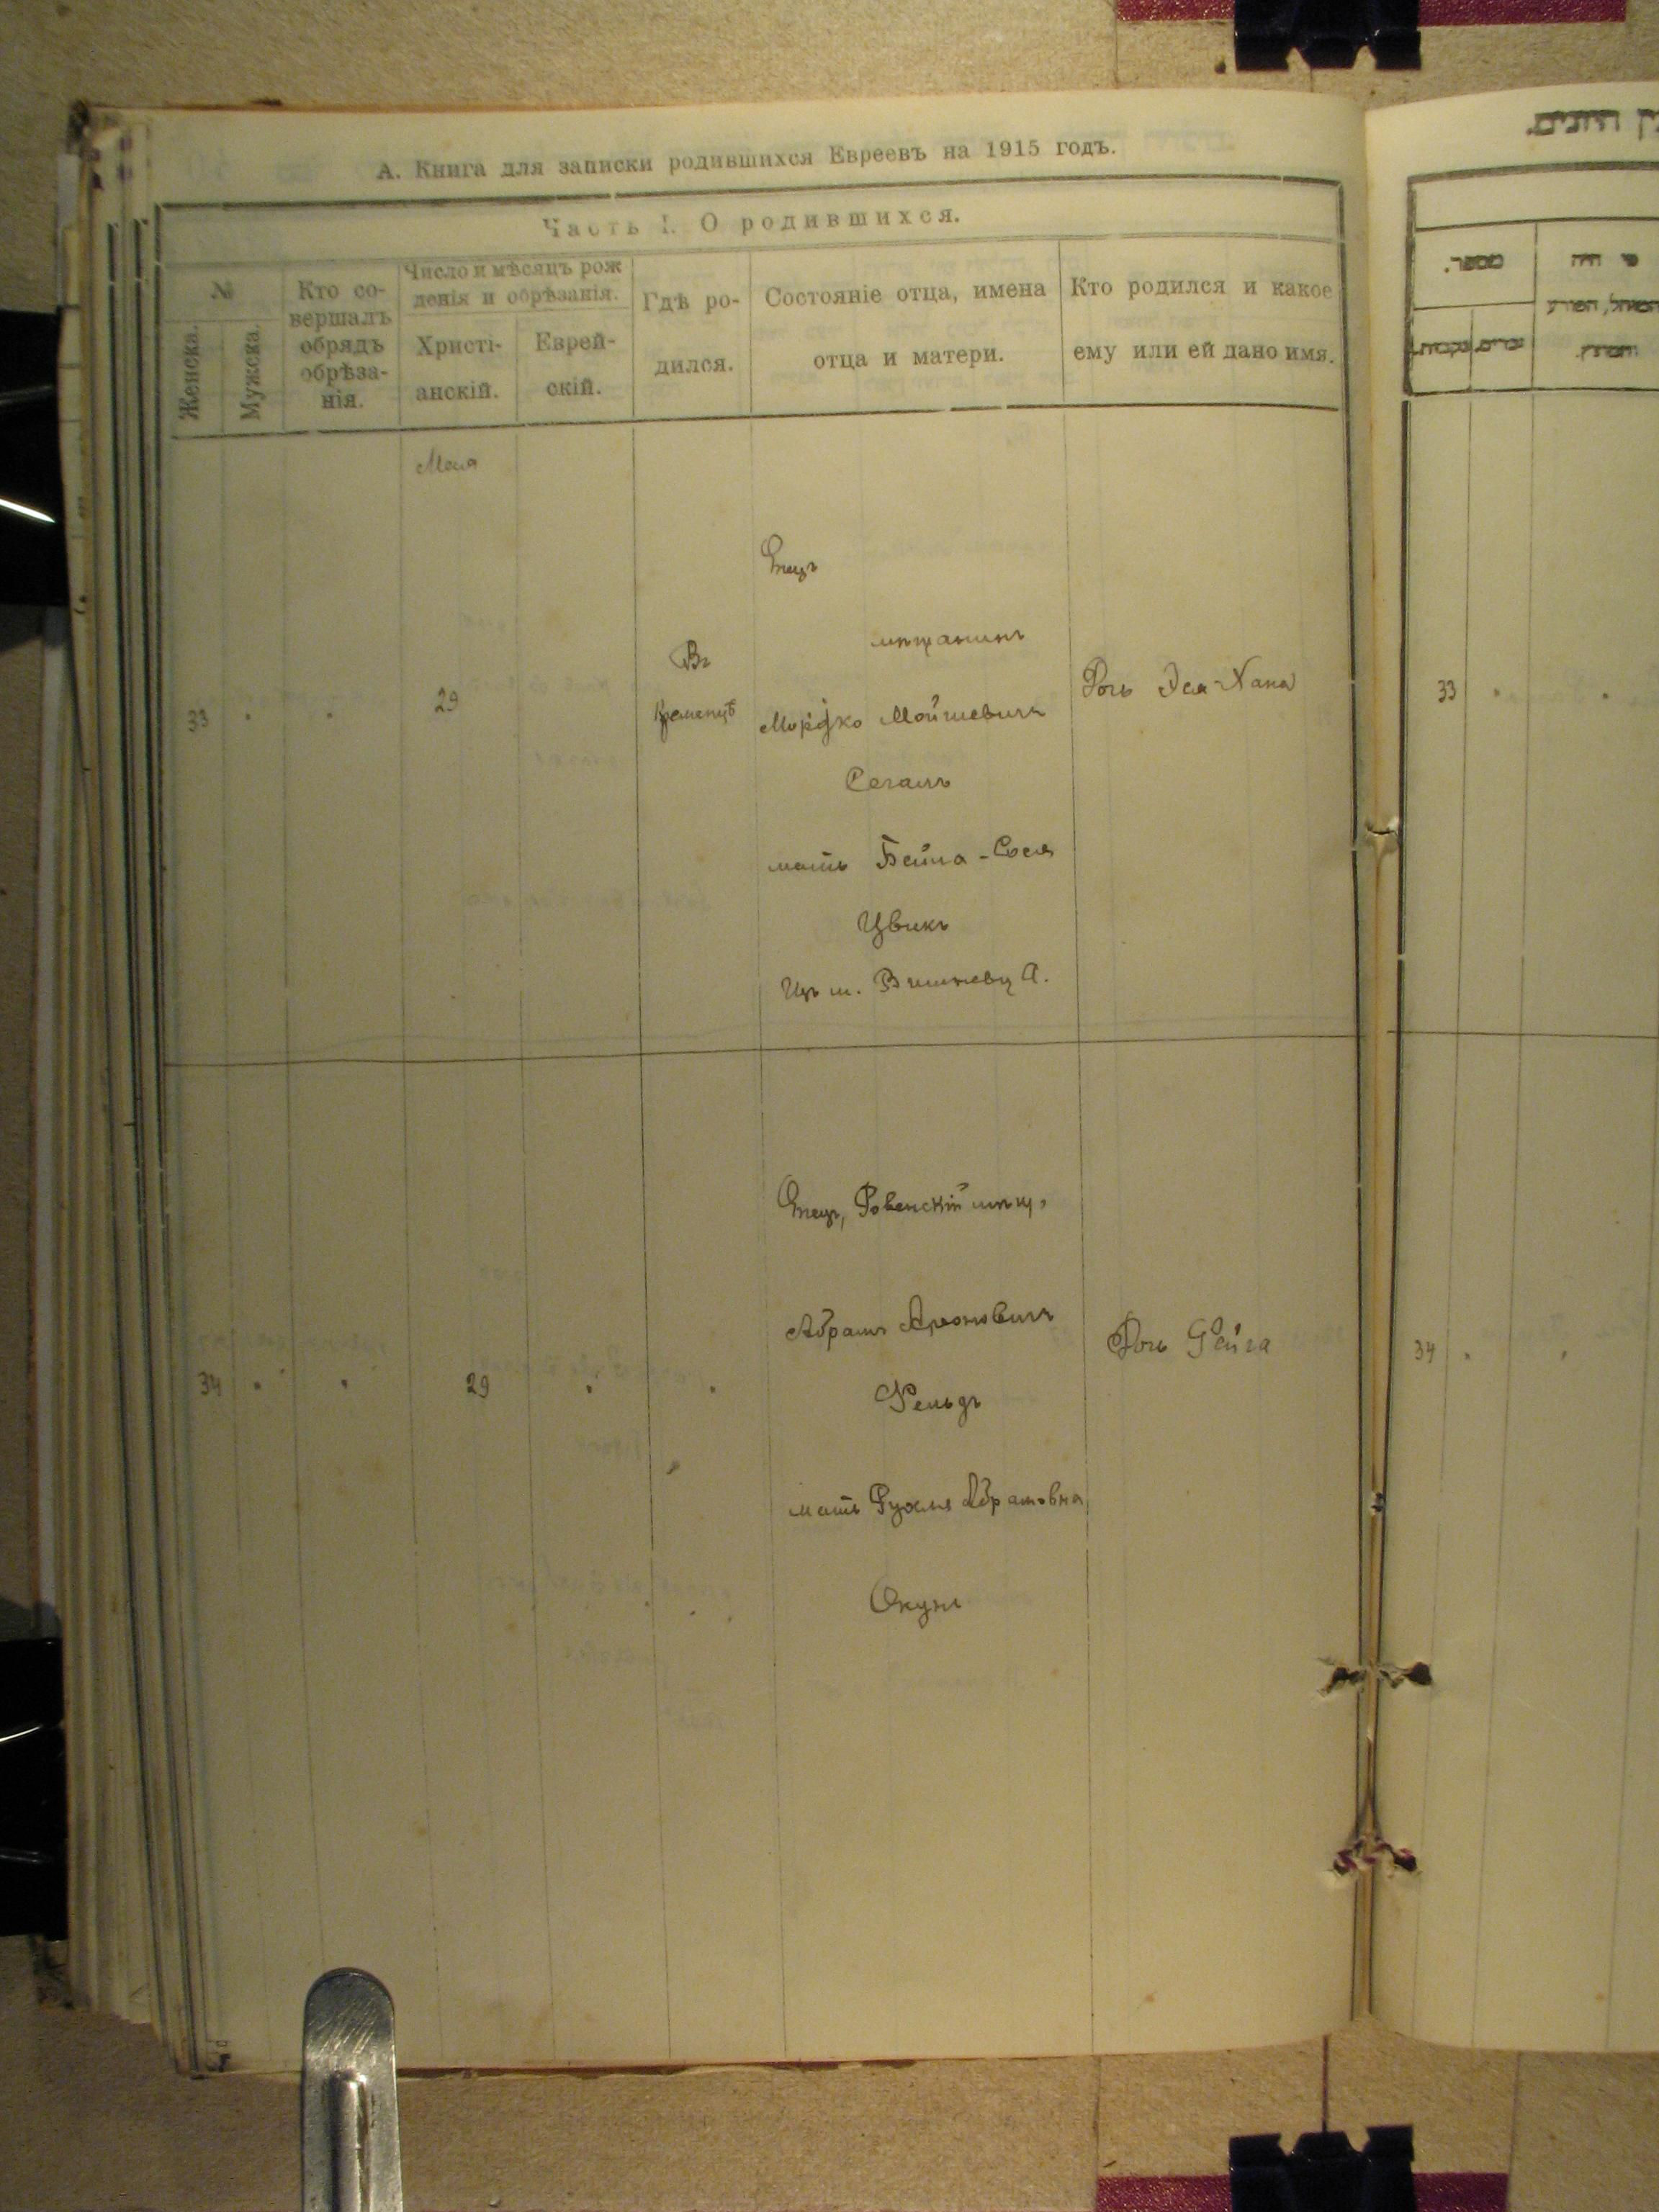 А. Книга для записки родившихся Евреевъ на 1915 годъ.
Часть I. О родившихся.
№
Женска.
Мужска.
Кто со-
вершалъ
обрядъ
обрѣза-
нія.
Число и мѣсяцъ рож
денія и обрѣзанія.
Христі-
анскій.
Еврей-
скій.
Гдѣ ро-
дился.
Состояніе отца, имена
отца и матери.
Кто родился и какое
ему или ей дано имя.
Мая
33
29
Въ
Кременцѣ
Отецъ
мѣщанинъ
Мордко Мойшевичъ
Сегалъ
мать Бейла-Сося
Цвикъ
Изъ м. Вишневца.
Дочь Эся-Хана
34
29
Отецъ, Ровенскій мѣщ.
Абрамъ Ароновичъ
Фельдъ
мать Рухля Абрамовна
Окунь
Дочь Фейга
היונים.
מספר.
זכרים.
נקבות.
מי היה
המוהל, הפורע
והמוצץ.
33
34